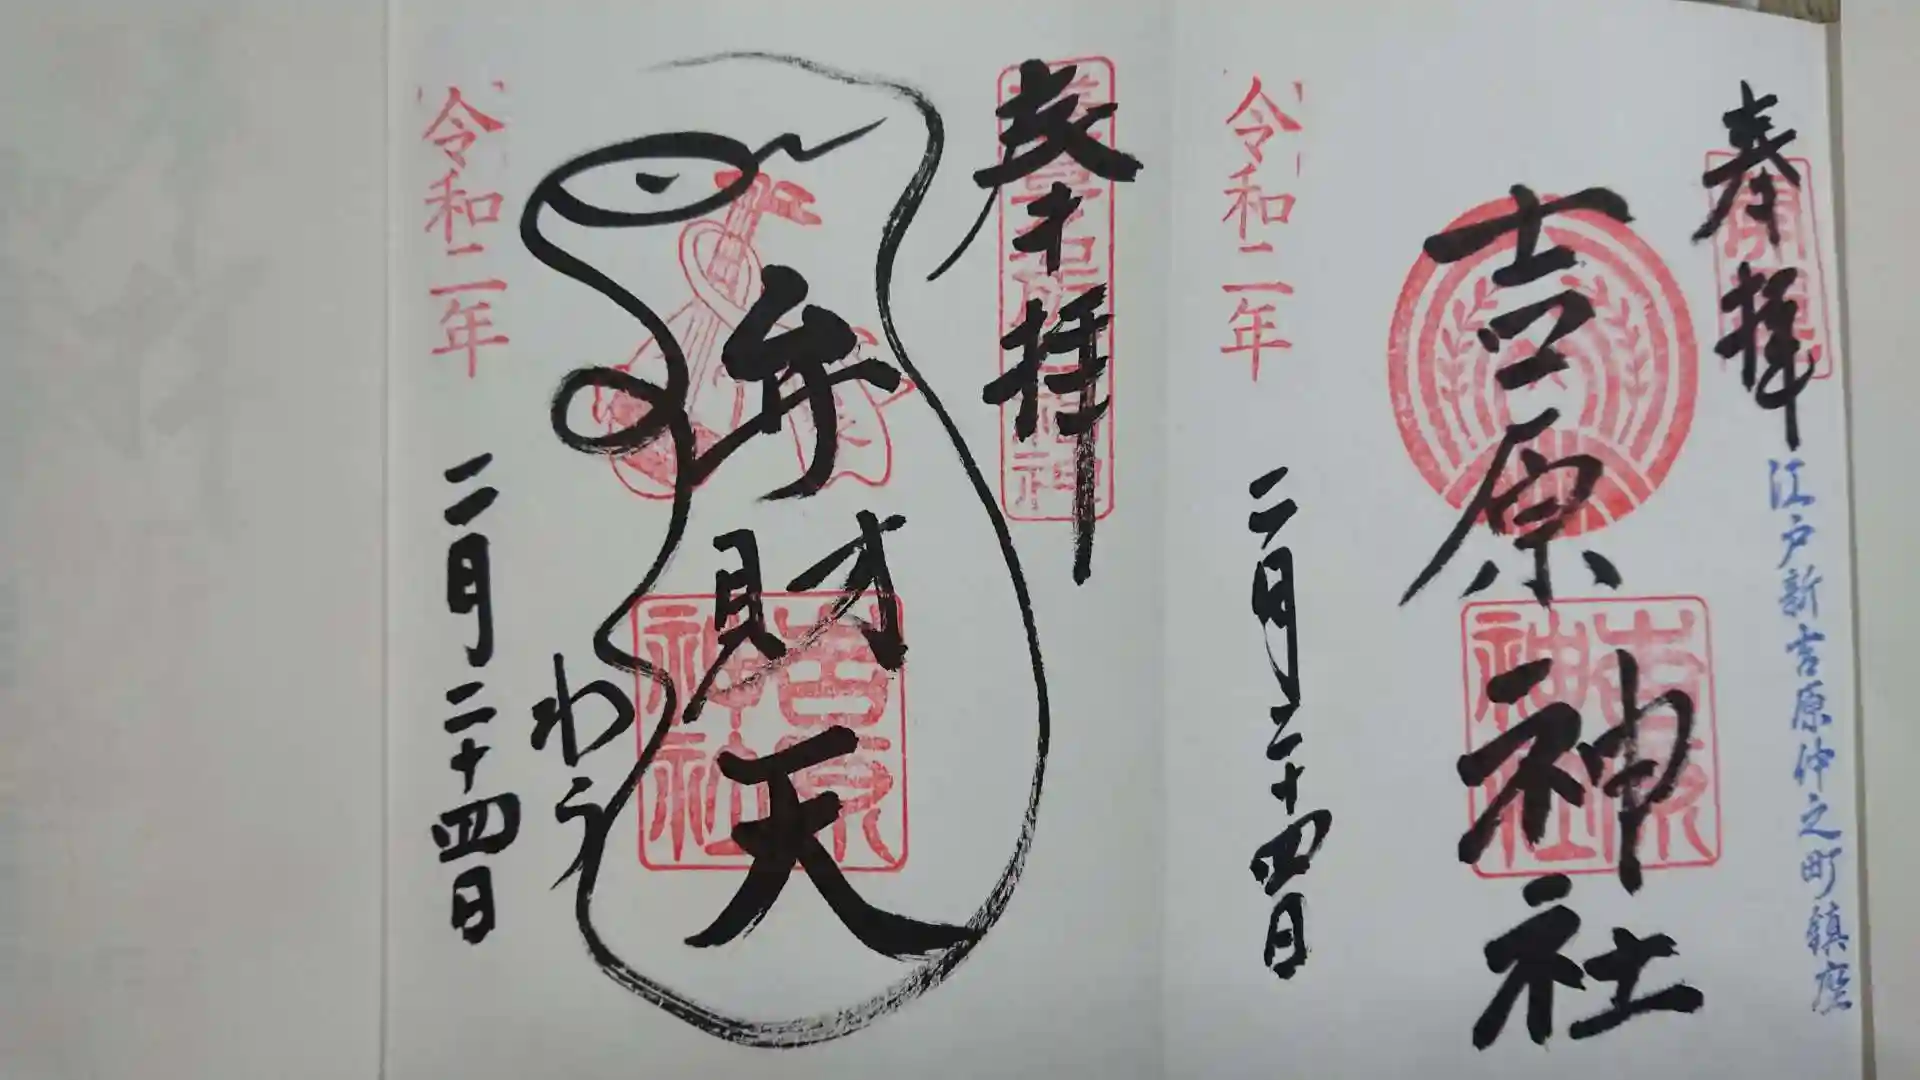 奉拝
江戸新吉原仲之町鎮座
吉原神社
吉原
神社
令和二年
二月二十四日
奉拝
弁財天
吉原
神社
わう
令和二年
二月二十四日